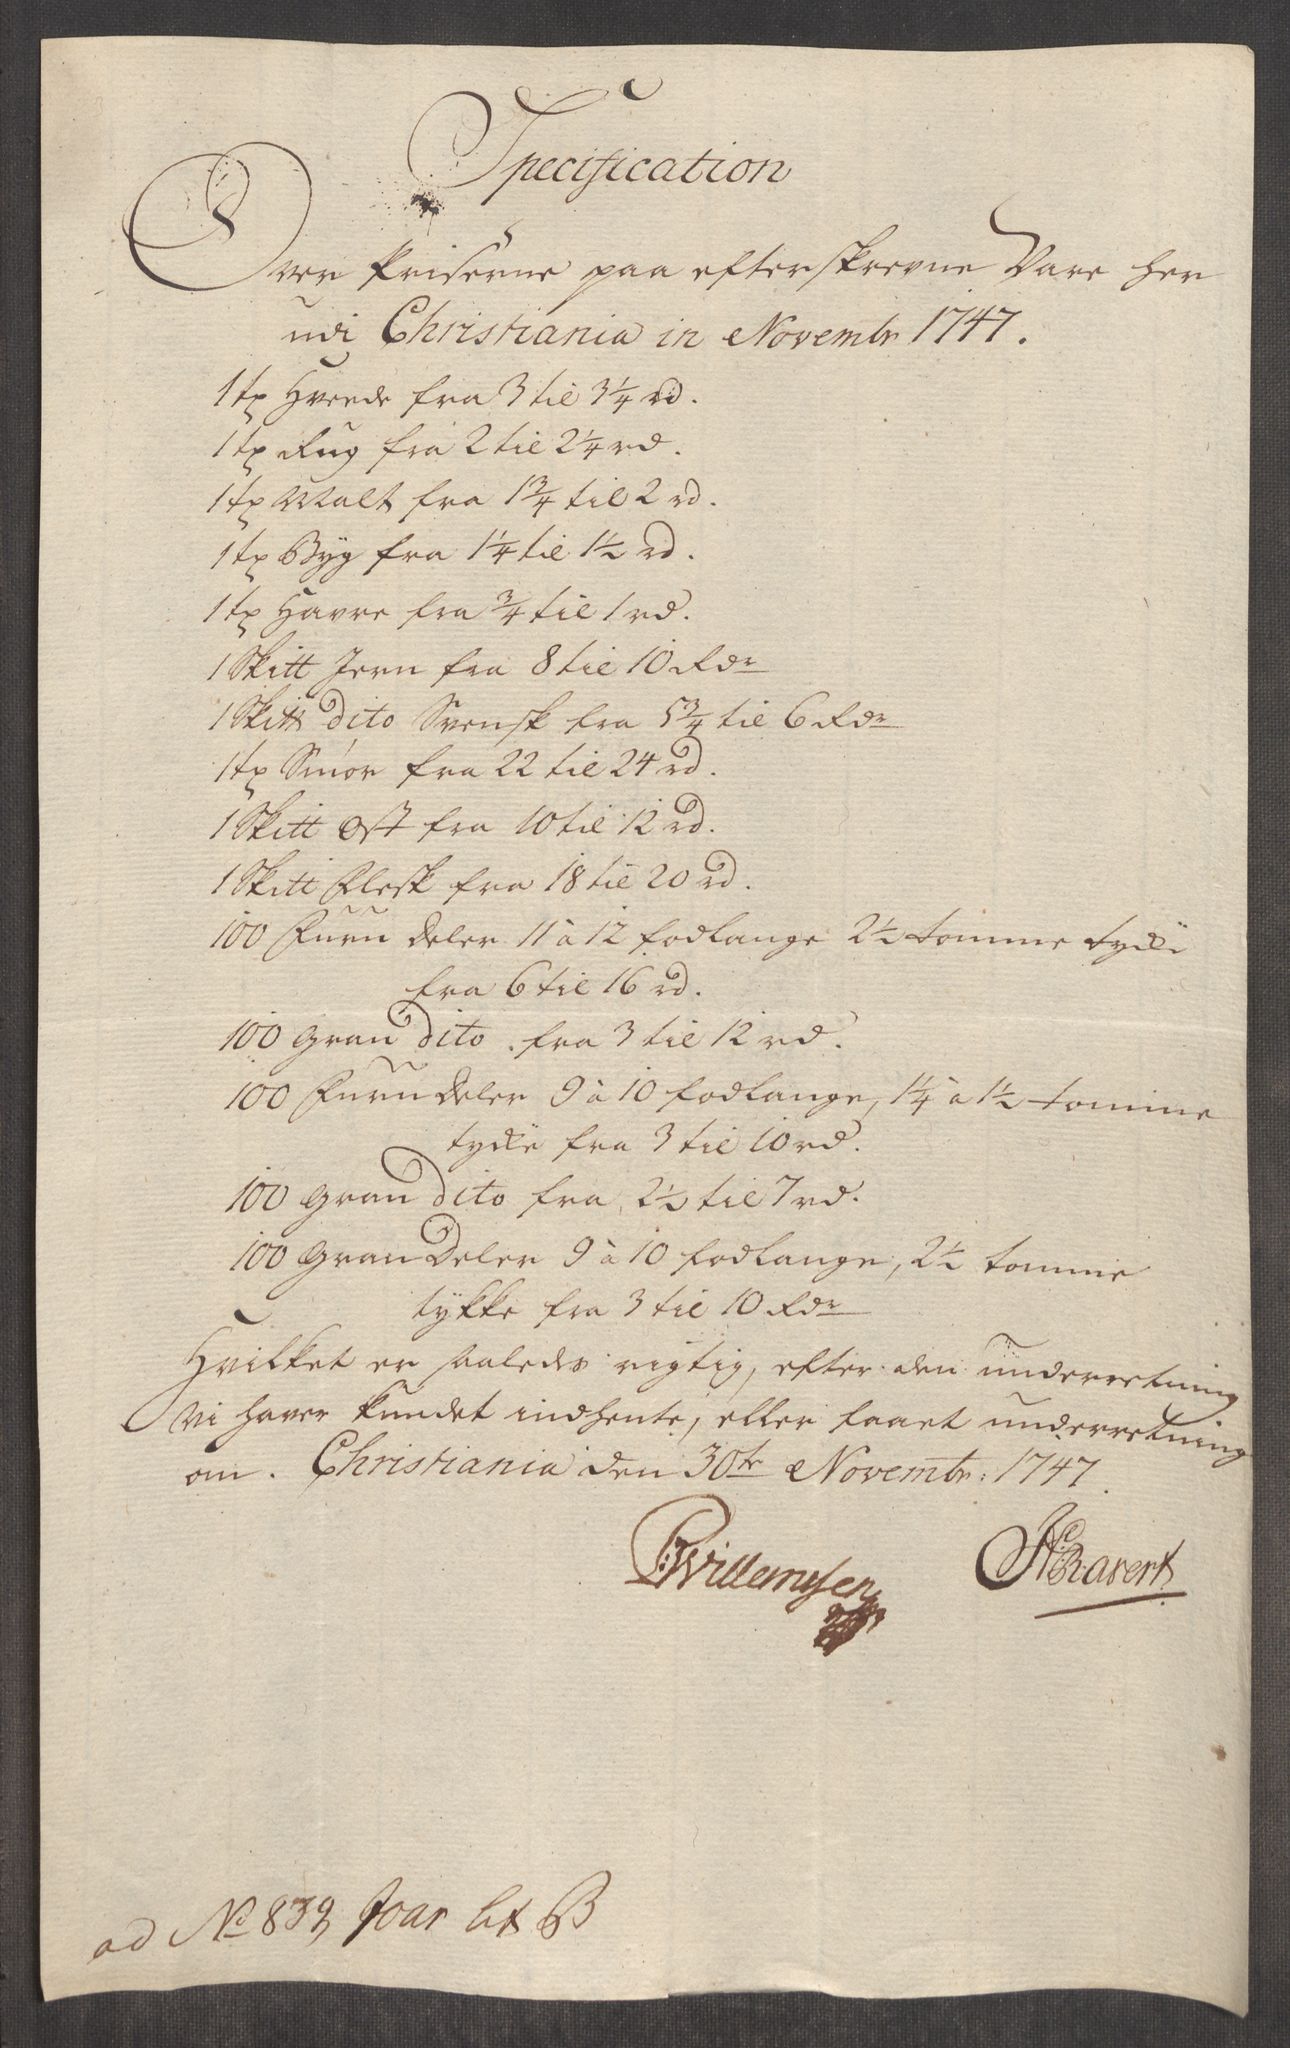 Specification
Over Priserne paa efterskrevne Vare her
udi Christiania in Novembr 1747.
1 tp Hvede fra 3 til 3¼ rd.
1 tp Rug fra 2 til 2¼ rd.
1 tp Malt fra 1¾ til 2 rd.
1 tp Byg fra 1¼ til 1½ rd.
1 tp Havre fra ¾ til 1 rd.
1 Skitt Jern fra 8 til 10 Rdr
1 Skitt dito Svensk fra 5¾ til 6 Rdr
1 tp Smør fra 22 til 24 rd.
1 Skitt Ost fra 10 til 12 rd.
1 Skitt Flesk fra 18 til 20 rd.
100 Furu deler 11 à 12 fodlange 2½ tomme tycke
fra 6 til 16 rd.
100 Gran dito. fra 3 til 12 rd.
100 Furu deler 9 à 10 fodlange, 1¼ à 1½ tomme
tycke fra 3 til 10 rd.
100 Gran dito fra 2½ til 7 rd.
100 Gran Deler 9 à 10 fodlange, 2½ tomme
tykke fra 3 til 10 Rdr
Hvilket er saaledes rigtig, efter den underretning
vi haver kundet indhente, eller faaet underretning
om. Christiania den 30te Novembr: 1747.
Willemsen Ravert
ad No 839 Joar lit B